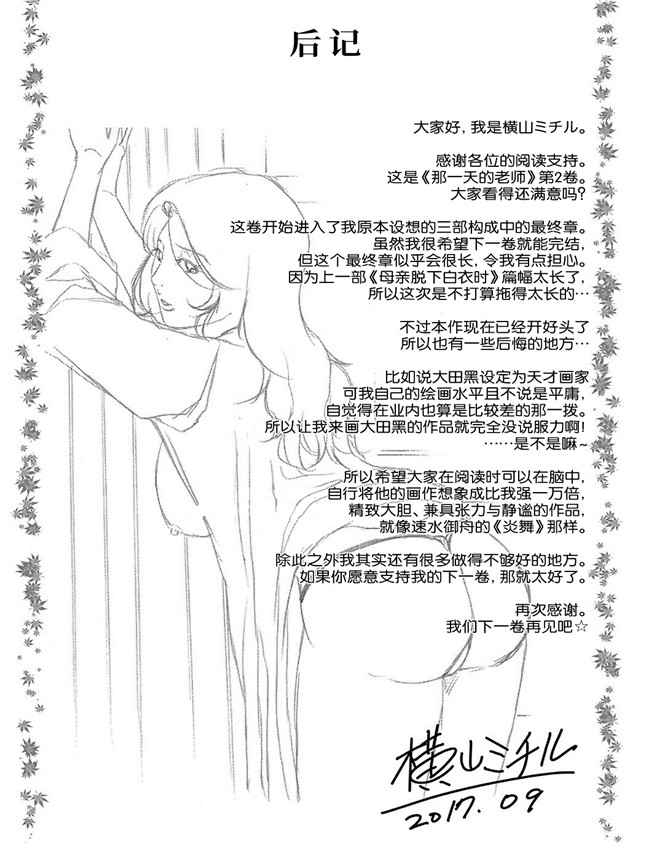 后记
大家好，我是横山ミチル。
感谢各位的阅读支持。
这是《那一天的老师》第2卷。
大家看得还满意吗？
这卷开始进入了我原本设想的三部构成中的最终章。
虽然我很希望下一卷就能完结，
但这个最终章似乎会很长，令我有点担心。
因为上一部《母亲脱下白衣时》篇幅太长了，
所以这次是不打算拖得太长的…
不过本作现在已经开好头了
所以也有一些后悔的地方…
比如说大田黑设定为天才画家
可我自己的绘画水平且不说是平庸，
自觉得在业内也算是比较差的那一拨。
所以让我来画大田黑的作品就完全没说服力啊！
……是不是嘛~
所以希望大家在阅读时可以在脑中，
自行将他的画作想象成比我强一万倍，
精致大胆、兼具张力与静谧的作品，
就像速水御舟的《炎舞》那样。
除此之外我其实还有很多做得不够好的地方。
如果你愿意支持我的下一卷，那就太好了。
再次感谢。
我们下一卷再见吧☆
横山ミチル
2017.09